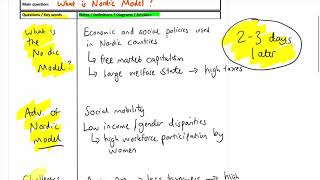 Main question: What is Nordic Model?
Questions / Key words
Notes / Definitions / Diagrams /
What is
the Nordic
Model?
Economic and social policies used
in Nordic countries
↳ free market capitalism
↳ large welfare state → high taxes
2-3 days
later
Adv. of
Nordic
model
Social mobility
Low income/gender disparities
↳ high workforce participation by
women
Challenges
→ high